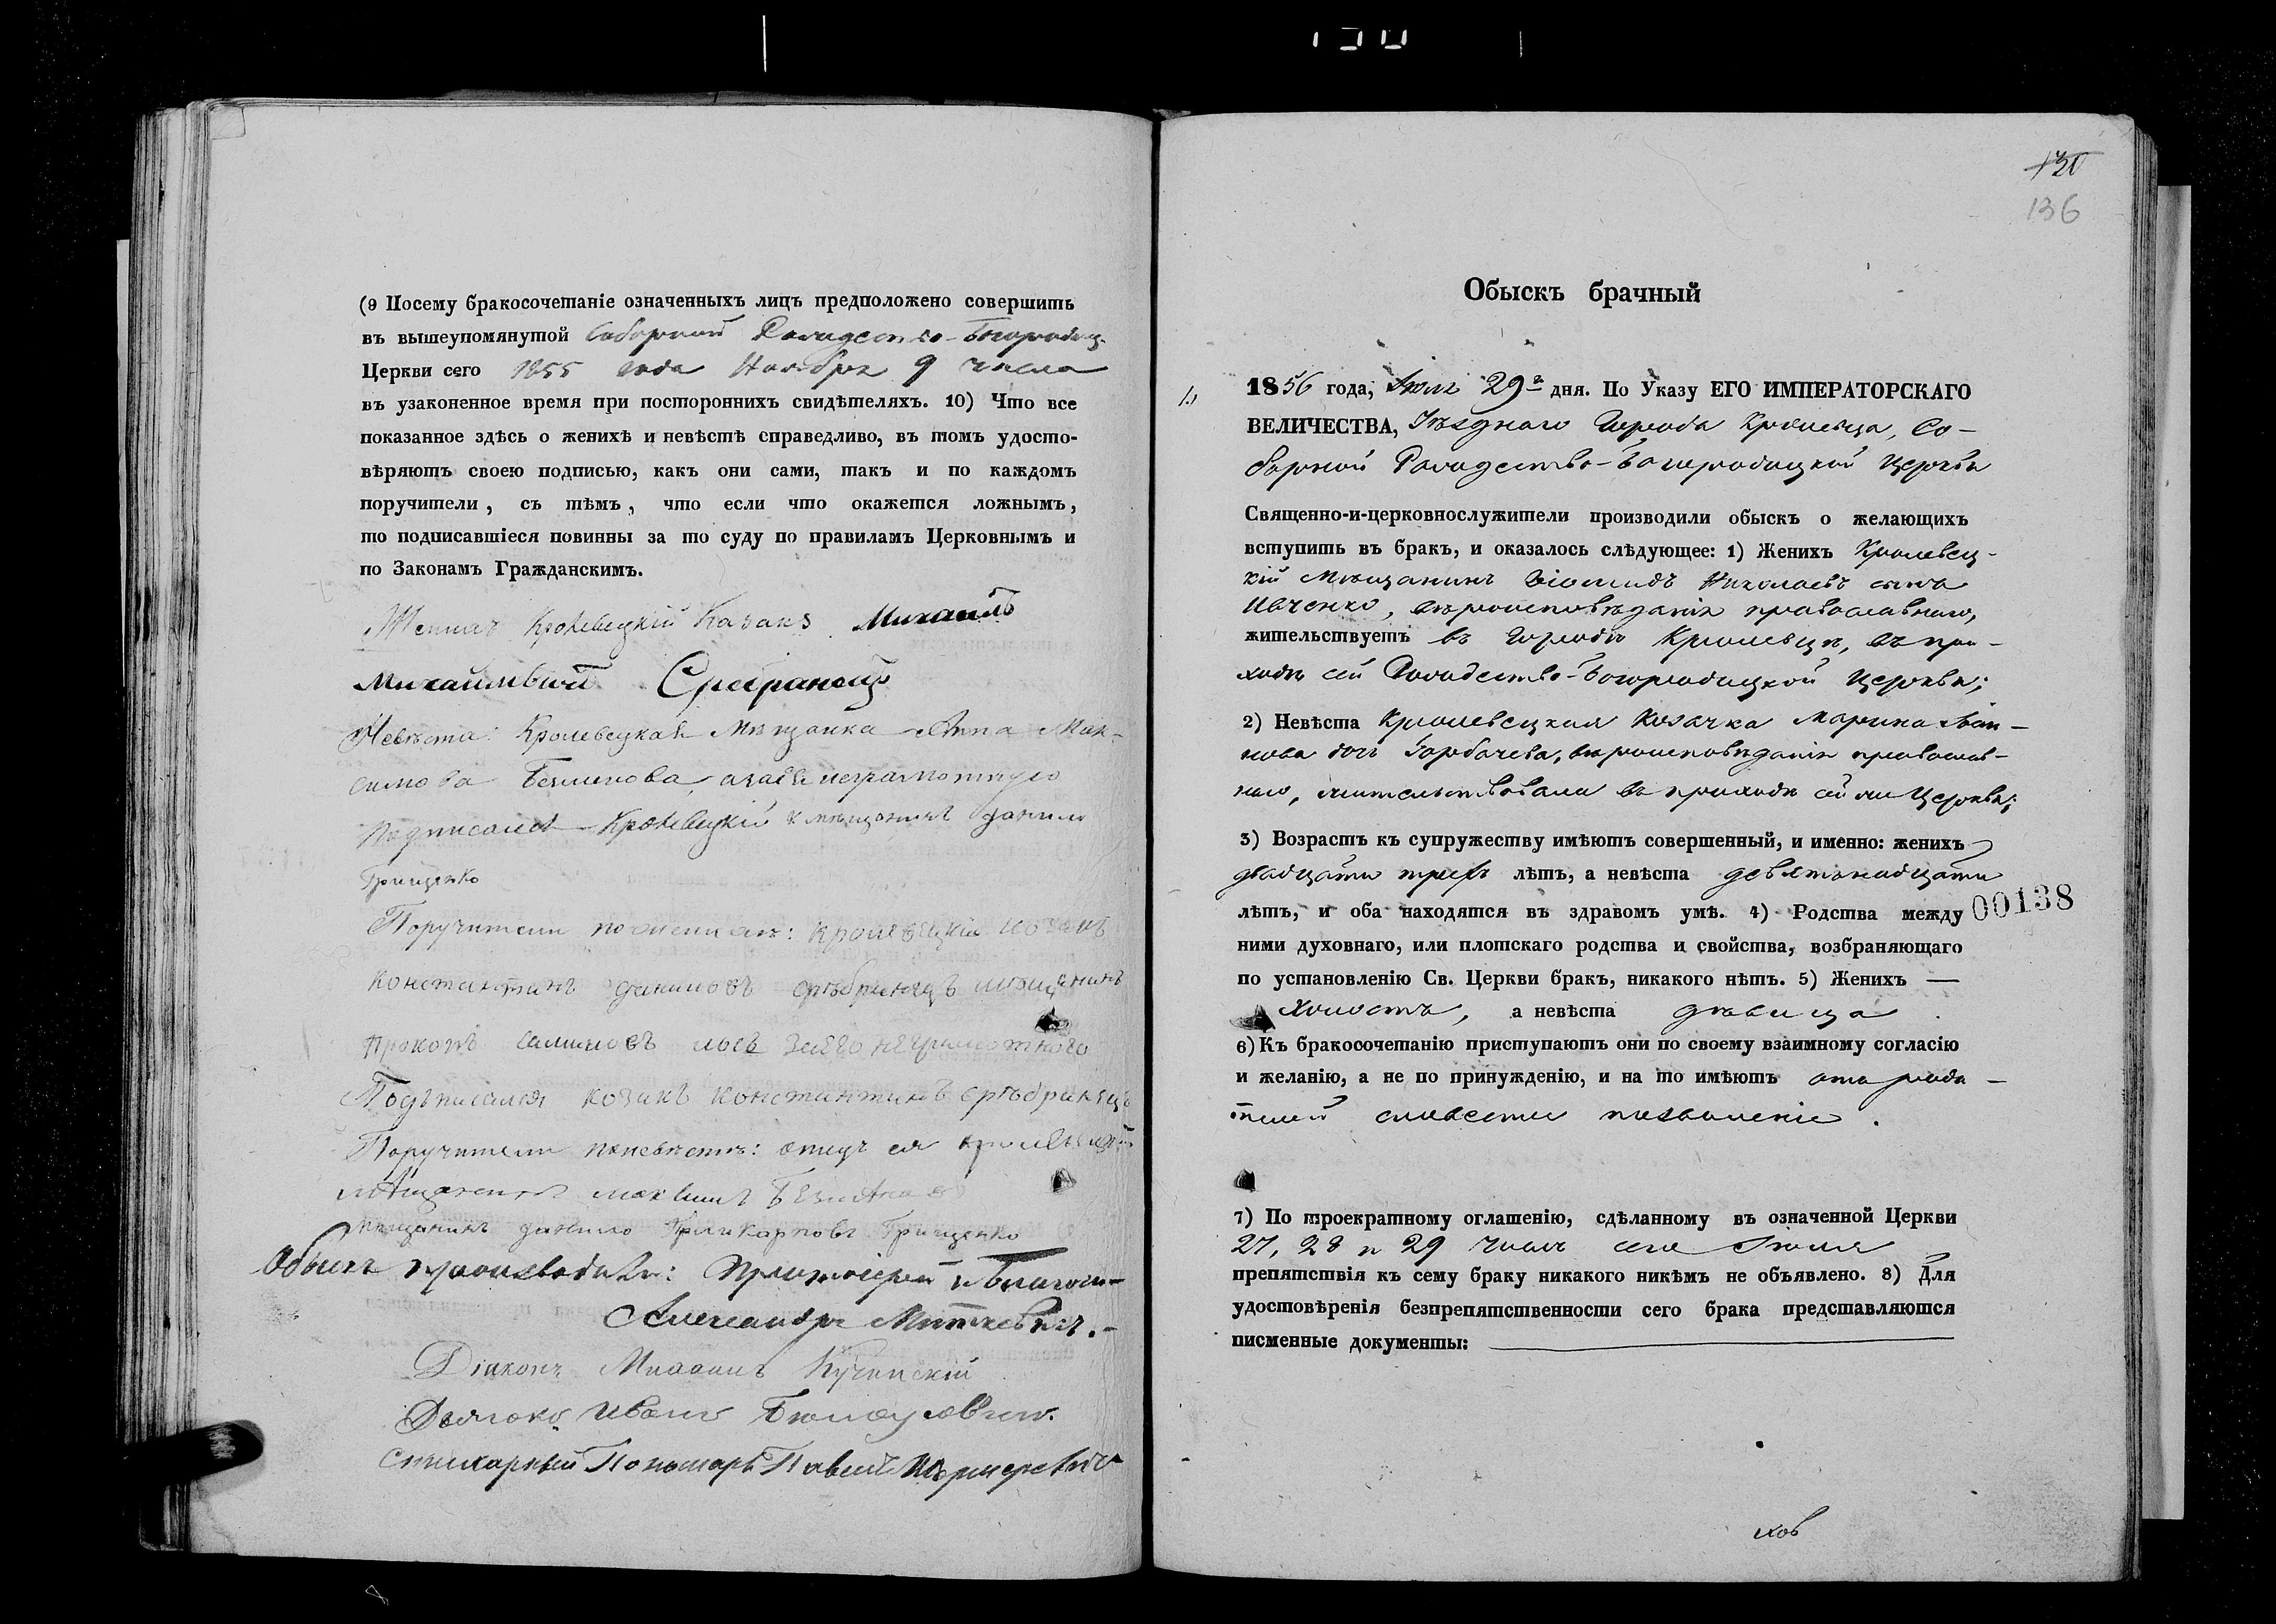 (9 Посему бракосочетаніе означенныхъ лицъ предположено совершить
въ вышеупомянутой Соборной Рождество-Богородиц.
Церкви сего 1855 года Ноября 9 числа
въ узаконенное время при постороннихъ свидѣтеляхъ. 10) Что все
показанное здѣсь о женихѣ и невѣстѣ справедливо, въ томъ удосто-
вѣряютъ своею подписью, какъ они сами, такъ и по каждомъ
поручители, съ тѣмъ, что если что окажется ложнымъ,
то подписавшіеся повинны за то суду по правиламъ Церковнымъ и
по Законамъ Гражданскимъ.
Женихъ Кролевецкій Казакъ Михаилъ
Михайловъ Сребранецъ
Невѣста: Кролевецкая Мѣщанка Анна Мак-
симова, а за ея неграмотную
подписался Кролевецкій мѣщанинъ данило
Грищенко
Поручители по женихѣ: Кролевецкій козакъ
константинъ даниловъ срѣбранецъ мѣщанинъ
прокопъ неграмотного
Подъписался козакъ константинъ срѣбранецъ
Поручители по невѣстѣ: отецъ ея кролевецкій
мѣщанинъ максимъ
мѣщанинъ данило Поликарповъ Грищенко
Обыскъ производили: Протоіерей и Благоч-
Александръ Миткевичъ.-
Діаконъ Михаилъ Кучинскій
Дьячокъ Иванъ
Стихарный Пономарь Павелъ
130
136
Обыскъ брачный
1856 года, Іюля 29го дня. По Указу ЕГО ИМПЕРАТОРСКАГО
ВЕЛИЧЕСТВА, Уѣзднаго Города Кролевца, Со-
борной Рождество-Богородицкой Церкви
Священно-и-церковнослужители производили обыскъ о желающихъ
вступить въ бракъ, и оказалось слѣдующее: 1) Женихъ Кролевец-
кій Мѣщанинъ Діомидъ Николаевъ сынъ
Ивченко, вѣроисповѣданія православнаго,
жительствуетъ въ Городѣ Кролевцѣ, въ при-
ходѣ сей Рождество-Богородицкой Церкви;
2) Невѣста Кролевецкая Козачка Марина Иван-
нова дочь Горбачева, вѣроисповѣданія православ-
наго, жительствовала въ приходѣ сей же Церкви;
3) Возрастъ къ супружеству имѣютъ совершенный, и именно: женихъ
двадцати трехъ лѣтъ, а невѣста девятьнадцати
лѣтъ, и оба находятся въ здравомъ умѣ. 4) Родства между
00138
ними духовнаго, или плотскаго родства и свойства, возбраняющаго
по установленію Св. Церкви бракъ, никакого нѣтъ. 5) Женихъ —
Холостъ, а невѣста дѣвица.
6) Къ бракосочетанію приступаютъ они по своему взаимному согласію
и желанію, а не по принужденію, и на то имѣютъ отъ роди-
телей словесное позволеніе.
7) По троекратному оглашенію, сдѣланному въ означенной Церкви
27, 28 и 29 числъ сего Іюля
препятствія къ сему браку никакого никѣмъ не объявлено. 8) Для
удостовѣренія безпрепятственности сего брака представляются
писменные документы: